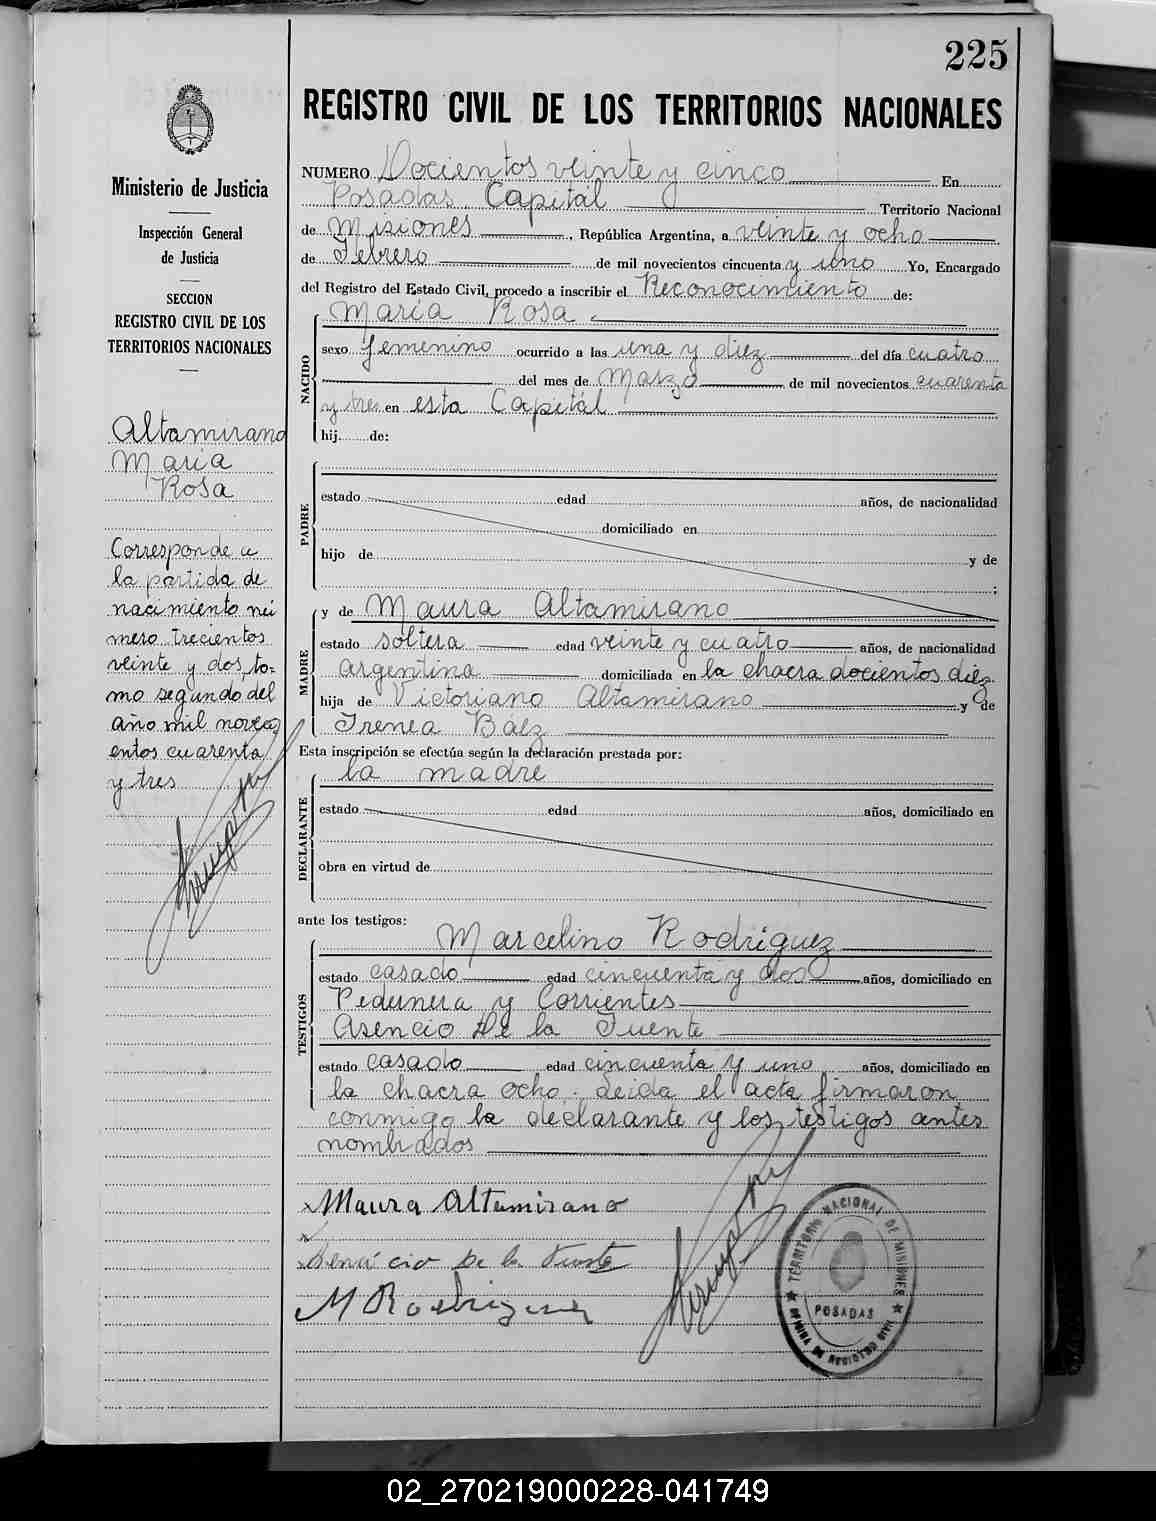 225
REGISTRO CIVIL DE LOS TERRITORIOS NACIONALES
Ministerio de Justicia
Inspección General
de Justicia
SECCION
REGISTRO CIVIL DE LOS
TERRITORIOS NACIONALES
Altamirano
Maria
Rosa
Corresponde a
la partida de
nacimiento nú
mero trecientos
veinte y dos, to=
mo segundo del
año mil noveci
entos cuarenta
y tres
NUMERO Docientos veinte y cinco En
Posadas Capitál Territorio Nacional
de Misiones, República Argentina, a veinte y ocho
de Febrero de mil novecientos cincuenta y uno Yo, Encargado
del Registro del Estado Civil, procedo a inscribir el Reconocimiento de:
NACIDO
María Rosa
sexo femenino ocurrido a las una y diez del día cuatro
del mes de Marzo de mil novecientos cuarenta
y tres en esta Capitál
hij de:
PADRE
estado edad años, de nacionalidad
domiciliado en
hijo de y de
;
MADRE
y de Maura Altamirano
estado soltera edad veinte y cuatro años, de nacionalidad
argentina domiciliada en la chacra docientos diéz
hija de Victoriano Altamirano y de
Irenea Báez
Esta inscripción se efectúa según la declaración prestada por:
DECLARANTE
la madre
estado edad años, domiciliado en
obra en virtud de
ante los testigos:
TESTIGOS
Marcelino Rodriguez
estado casado edad cincuenta y dos años, domiciliado en
Pedernera y Corrientes
Asencio De la Fuente
estado casado edad cincuenta y uno años, domiciliado en
la chacra ocho. Leida el acta firmaron
conmigo la declarante y los testigos antes
nombrados
Maura Altamirano
De la Fuente
M Rodriguez
TERRITORIO NACIONAL DE MISIONES
POSADAS
OFICINA DE REGISTRO CIVIL
02_270219000228-041749